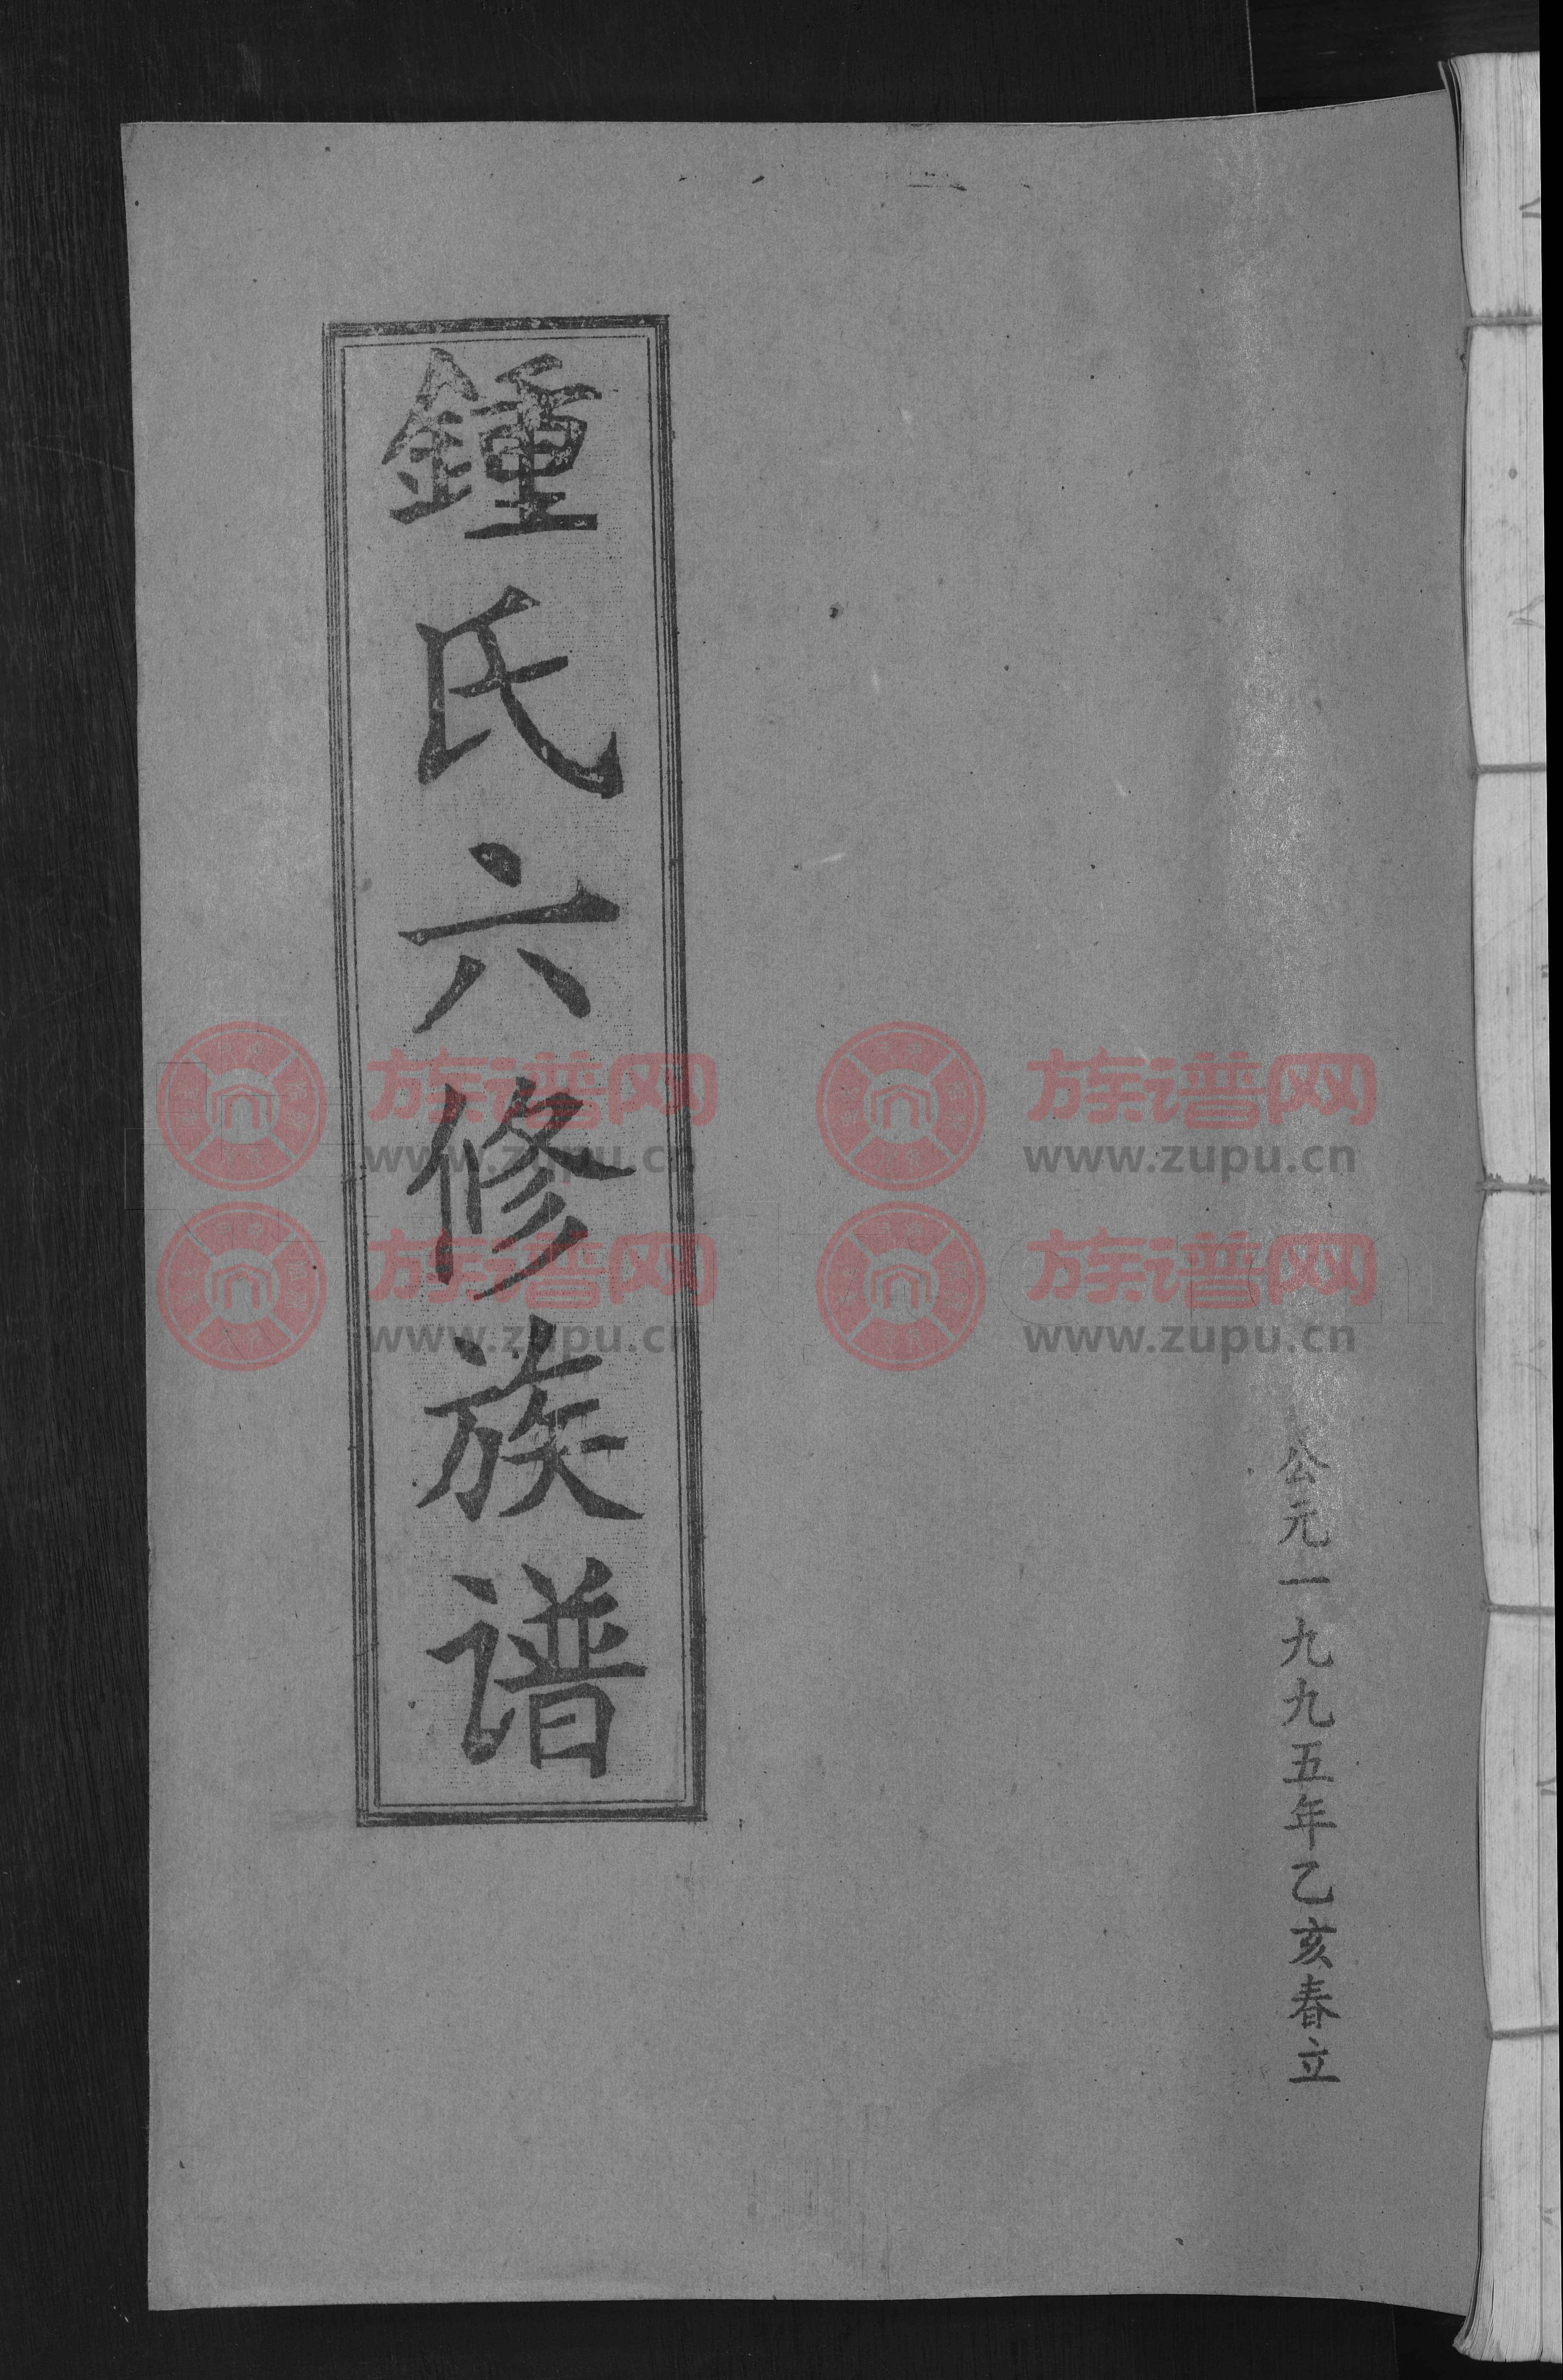 公元一九九五年乙亥春立
鍾氏六修族谱
族谱网
www.zupu.cn
族谱网
www.zupu.cn
族谱网
www.zupu.cn
族谱网
www.zupu.cn